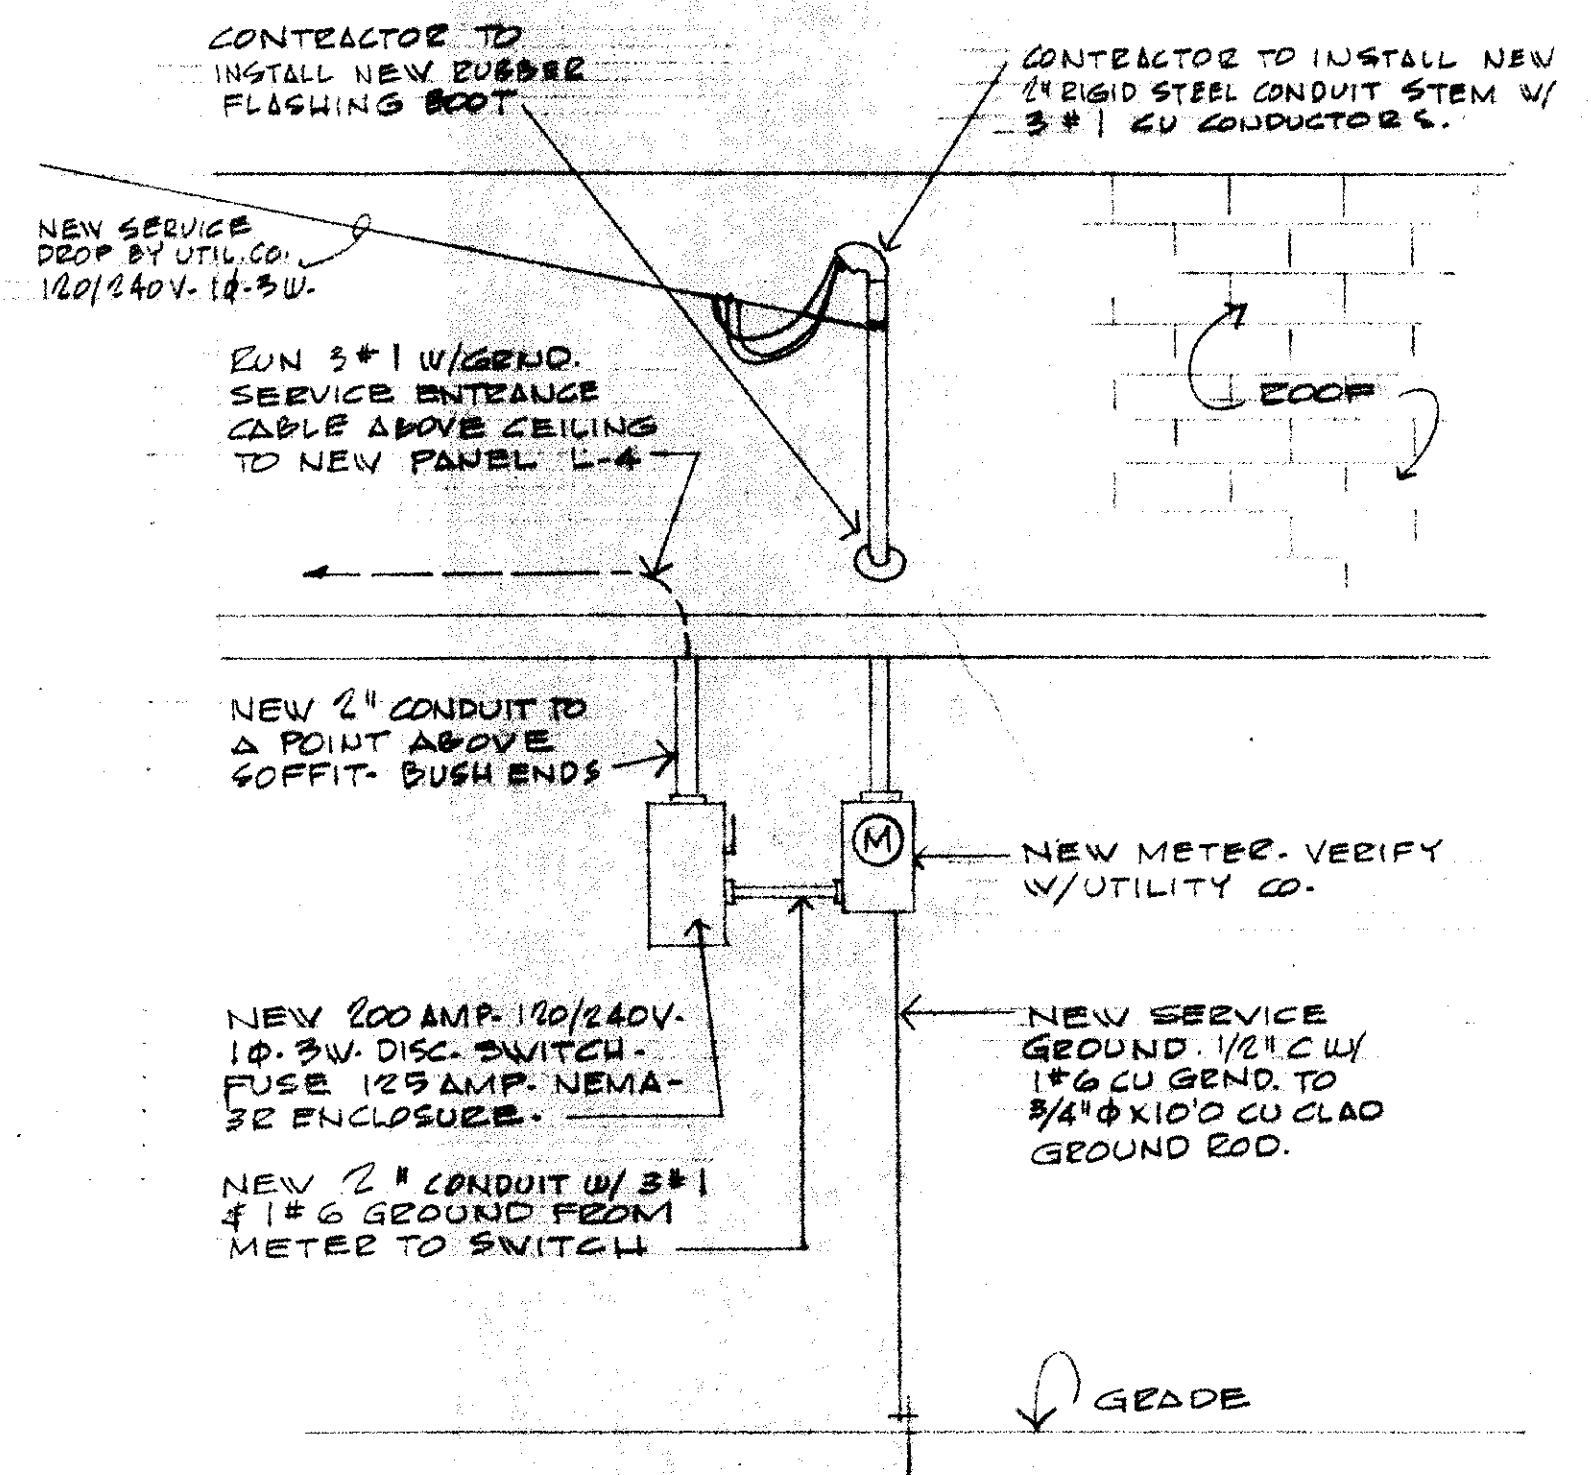 CONTRACTOR TO
INSTALL NEW RUBBER
FLASHING BOOT
CONTRACTOR TO INSTALL NEW
2" RIGID STEEL CONDUIT STEM W/
3 # 1 CU CONDUCTORS.
NEW SERVICE
DROP BY UTIL. CO.
120/240V- 1φ-3W.
RUN 3 # 1 W/GRND.
SERVICE ENTRANCE
CABLE ABOVE CEILING
TO NEW PANEL L-4
ROOF
NEW 2" CONDUIT TO
A POINT ABOVE
SOFFIT- BUSH ENDS
M
NEW METER- VERIFY
W/UTILITY CO.
NEW 200 AMP- 120/240V-
1φ. 3W. DISC. SWITCH -
FUSE 125 AMP. NEMA-
3R ENCLOSURE.
NEW SERVICE
GROUND. 1/2" C W/
1#6 CU GRND. TO
3/4"φ X10'0 CU CLAD
GROUND ROD.
NEW 2" CONDUIT W/ 3#1
& 1#6 GROUND FROM
METER TO SWITCH
GRADE